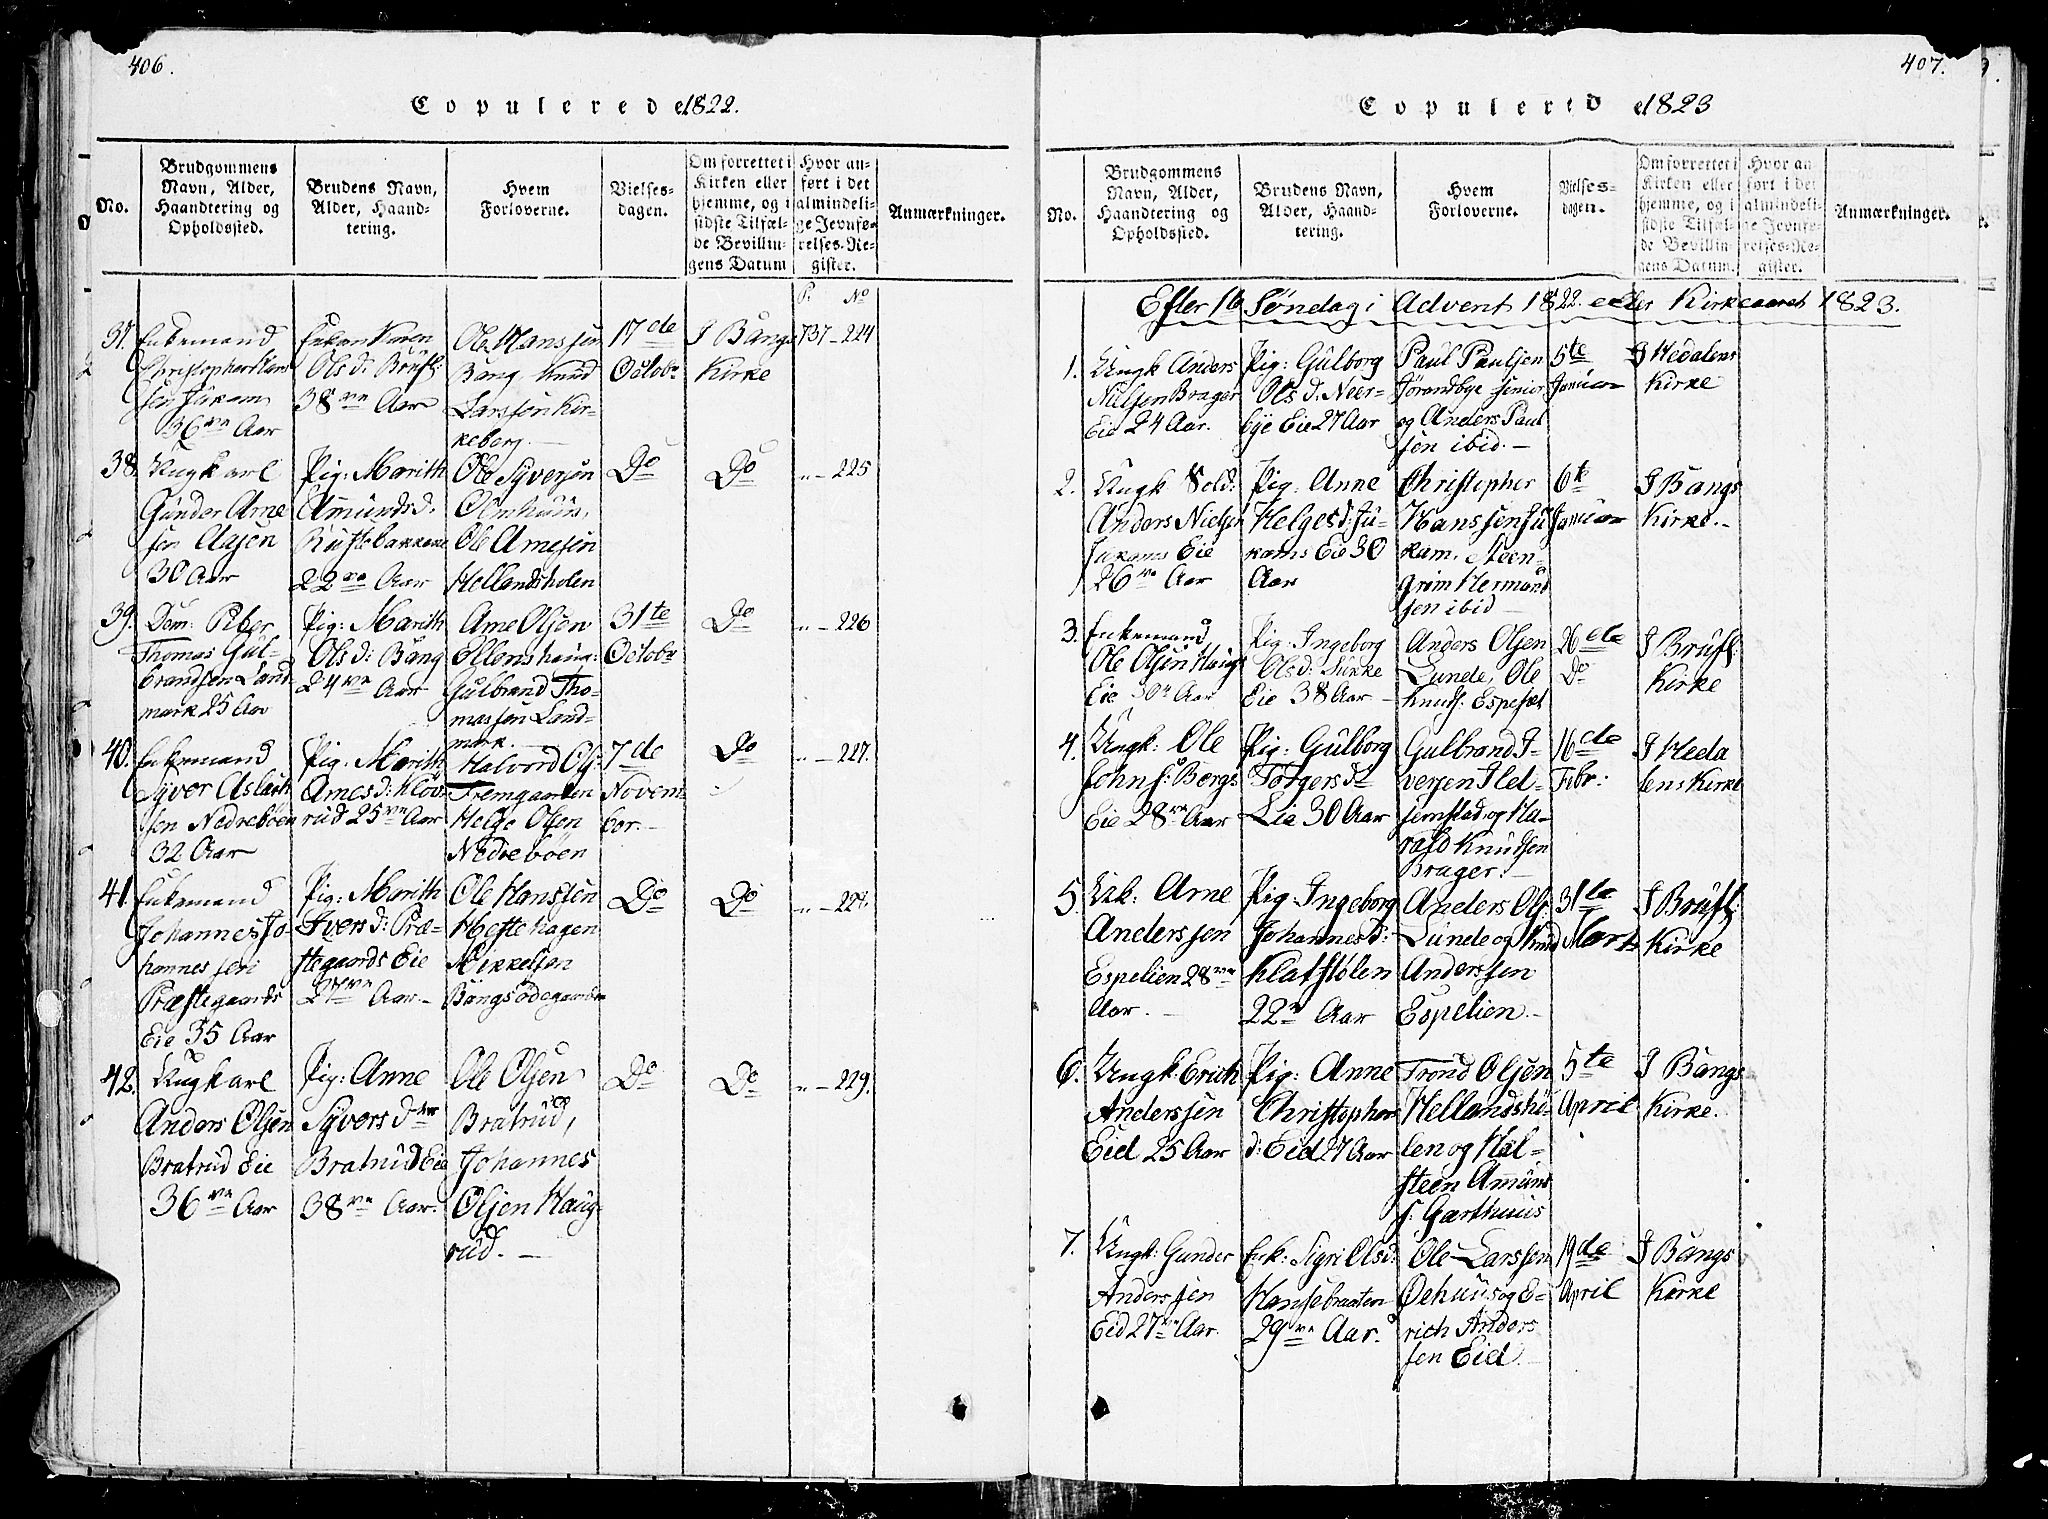 406.
Copulerede 1822.
No.
Brudgommens
Navn, Alder,
Haandtering og
Opholdssted.
Brudens Navn,
Alder, Haand-
tering.
Hvem
Forloverne.
Vielses-
dagen.
Om forrettet i
Kirken eller
hjemme, og i
sidste Tilfæl-
de Bevillin-
gens Datum
Hvor an-
ført i det
almindeli-
ge Jevnfø-
relses-Re-
gister.
Anmærkninger.
P: No
37. Enkemand
Christopher
36 Aar
Enken Karen
Olsd: Brufl:
38 Aar
Ole Hanssen
Bang, Knud
Larssen Kir-
keberg.
17de
Octobr
I Bangs
Kirke
737 - 224
38. Ungkarl
Gunder Arne
sen Aasen
30 Aar
Pig: Marith
Amundsd.
22 Aar
Ole Syversen
Olmhuus,
Ole Arnesen
Hellandsholen
Do
Do
" - 225
39. Dom: Piber
Thomas Gul-
brandsen Land-
mark 25 Aar
Pig: Marith
Olsd: Bang
24 Aar
Arne Olsen
Ellenshaug:
Gulbrand Tho-
massen Land-
mark.
31te
Octobr
Do
" - 226
40. Enkemand
Syver Aslach
sen Nedrebøen
32 Aar
Pig: Marith
Arnesd: Kløv-
rud 25 Aar
Halvord Ols:
Fremgaarden
Helge Olsen
Nedrebøen
7de
Novem-
ber.
Do
" - 227.
41. Enkemand
Johannes Jo-
hannessen
Præstegaards
Eie 35 Aar
Pig: Marith
Iversd: Præ-
stegaards Eie
27 Aar.
Ole Hanssen
Heftehagen
Mikkelsen
Bangsødegaarden
Do
Do
" - 228.
42. Ungkarl
Anders Olsen
Bratrud Eie
36 Aar
Pig: Anne
Syversdtr
Bratrud Eie
38 Aar.
Ole Olsen
Bratrud,
Johannes
Olsen Haug-
rud.
Do
Do
" - 229.
407.
Copulerede 1823
No.
Brudgommens
Navn, Alder,
Haandtering og
Opholdssted.
Brudens Navn,
Alder, Haand-
tering.
Hvem
Forloverne.
Vielses-
dagen.
Om forrettet i
Kirken eller
hjemme, og i
sidste Tilfæl-
de Bevillin-
gens Datum.
Hvor an
ført i det
almindeli-
ge Jevnfø-
relses-Re-
gister.
Anmærkninger.
Efter 1te Søndag i Advent 1822 eller Kirkeaaret 1823.
1. Ungk Anders
Nielsen Brager
Eie 24 Aar.
Pig: Gulborg
Olsd. Neer-
bye Eie 27 Aar
Paul Paulsen
Jørandbye senior
og Anders Paul
sen ibid.
5te
Januar
I Hedalens
Kirke
2. Ungk Sold:
Anders Nielsen
Jukams Eie
26 Aar
Pig: Anne
Helgesd: Ju-
kams Eie 30
Aar
Christopher
Hanssen Ju
kam. Steen-
grim Hermand
sen ibid
6te
Januar
I Bangs
Kirke.
3. Enkemand
Ole Olsen Haugs
Eie 30 Aar
Pig: Ingeborg
Olsd:
Eie 38 Aar
Anders Olsen
Lunde, Ole
Knuds: Espeset
26de
Do
I Brufl:
Kirke
4. Ungk: Ole
Johns: Bergs
Eie 28 Aar
Pig: Gulborg
Torgersd
Lie 30 Aar
Gulbrand I-
versen Ildj-
jernstad og Ha-
rald Knudsen
Brager.
16de
Febr:
I Heda
lens Kirke
5. Enk: Arne
Anderssen
Espelien 28
Aar.
Pig: Ingeborg
Johannesd:
Klatstølen
22 Aar
Anders Ols:
Lunde og Knud
Anderssen
Espelien.
31te
Marts
I Brufl:
Kirke
6. Ungk: Erich
Anderssen
Eid 25 Aar
Pig: Anne
Christophers
d: Eid 27 Aar
Trond Olsen
Hellandsho-
len og Hal-
steen Amund
s: Garthuus
5te
April
I Bangs
Kirke.
7. Ungk: Gunder
Anderssen
Eid 27 Aar.
Enk: Sigri Olsd:
Hansebraaten
29 Aar.
Ole Larssen
Øehuus og E-
rich Anders
sen Eid.
19de
April
I Bangs
Kirke